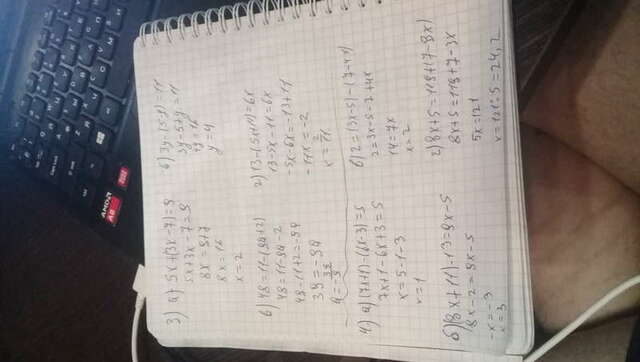 3) а) 5x+(3x-7)=9
5x+3x-7=9
8x=9+7
8x=16
x=2
б) 3y-(5-y)=11
3y-5+y=11
4y=16
y=4
в) 48=11-(9a+2)
48=11-9a-2
48-11+2=-9a
39=-9a
г) 13-(5x+11)=6x
13-5x-11=6x
-5x-6x=-13+11
-11x=-2
x=2/11
4) а) (7x+1)-(6x-3)=5
7x+1-6x+3=5
x=5-1-3
x=1
б) 2=(3x-5)-(7-4x)
2=3x-5-7+4x
14=7x
x=2
б) (8x+11)-13=9x-5
8x-2=9x-5
-x=-3
x=3
г) 8x+5=119+(7-3x)
8x+5=119+7-3x
5x=121
x=121:5=24,2
AMD
A8